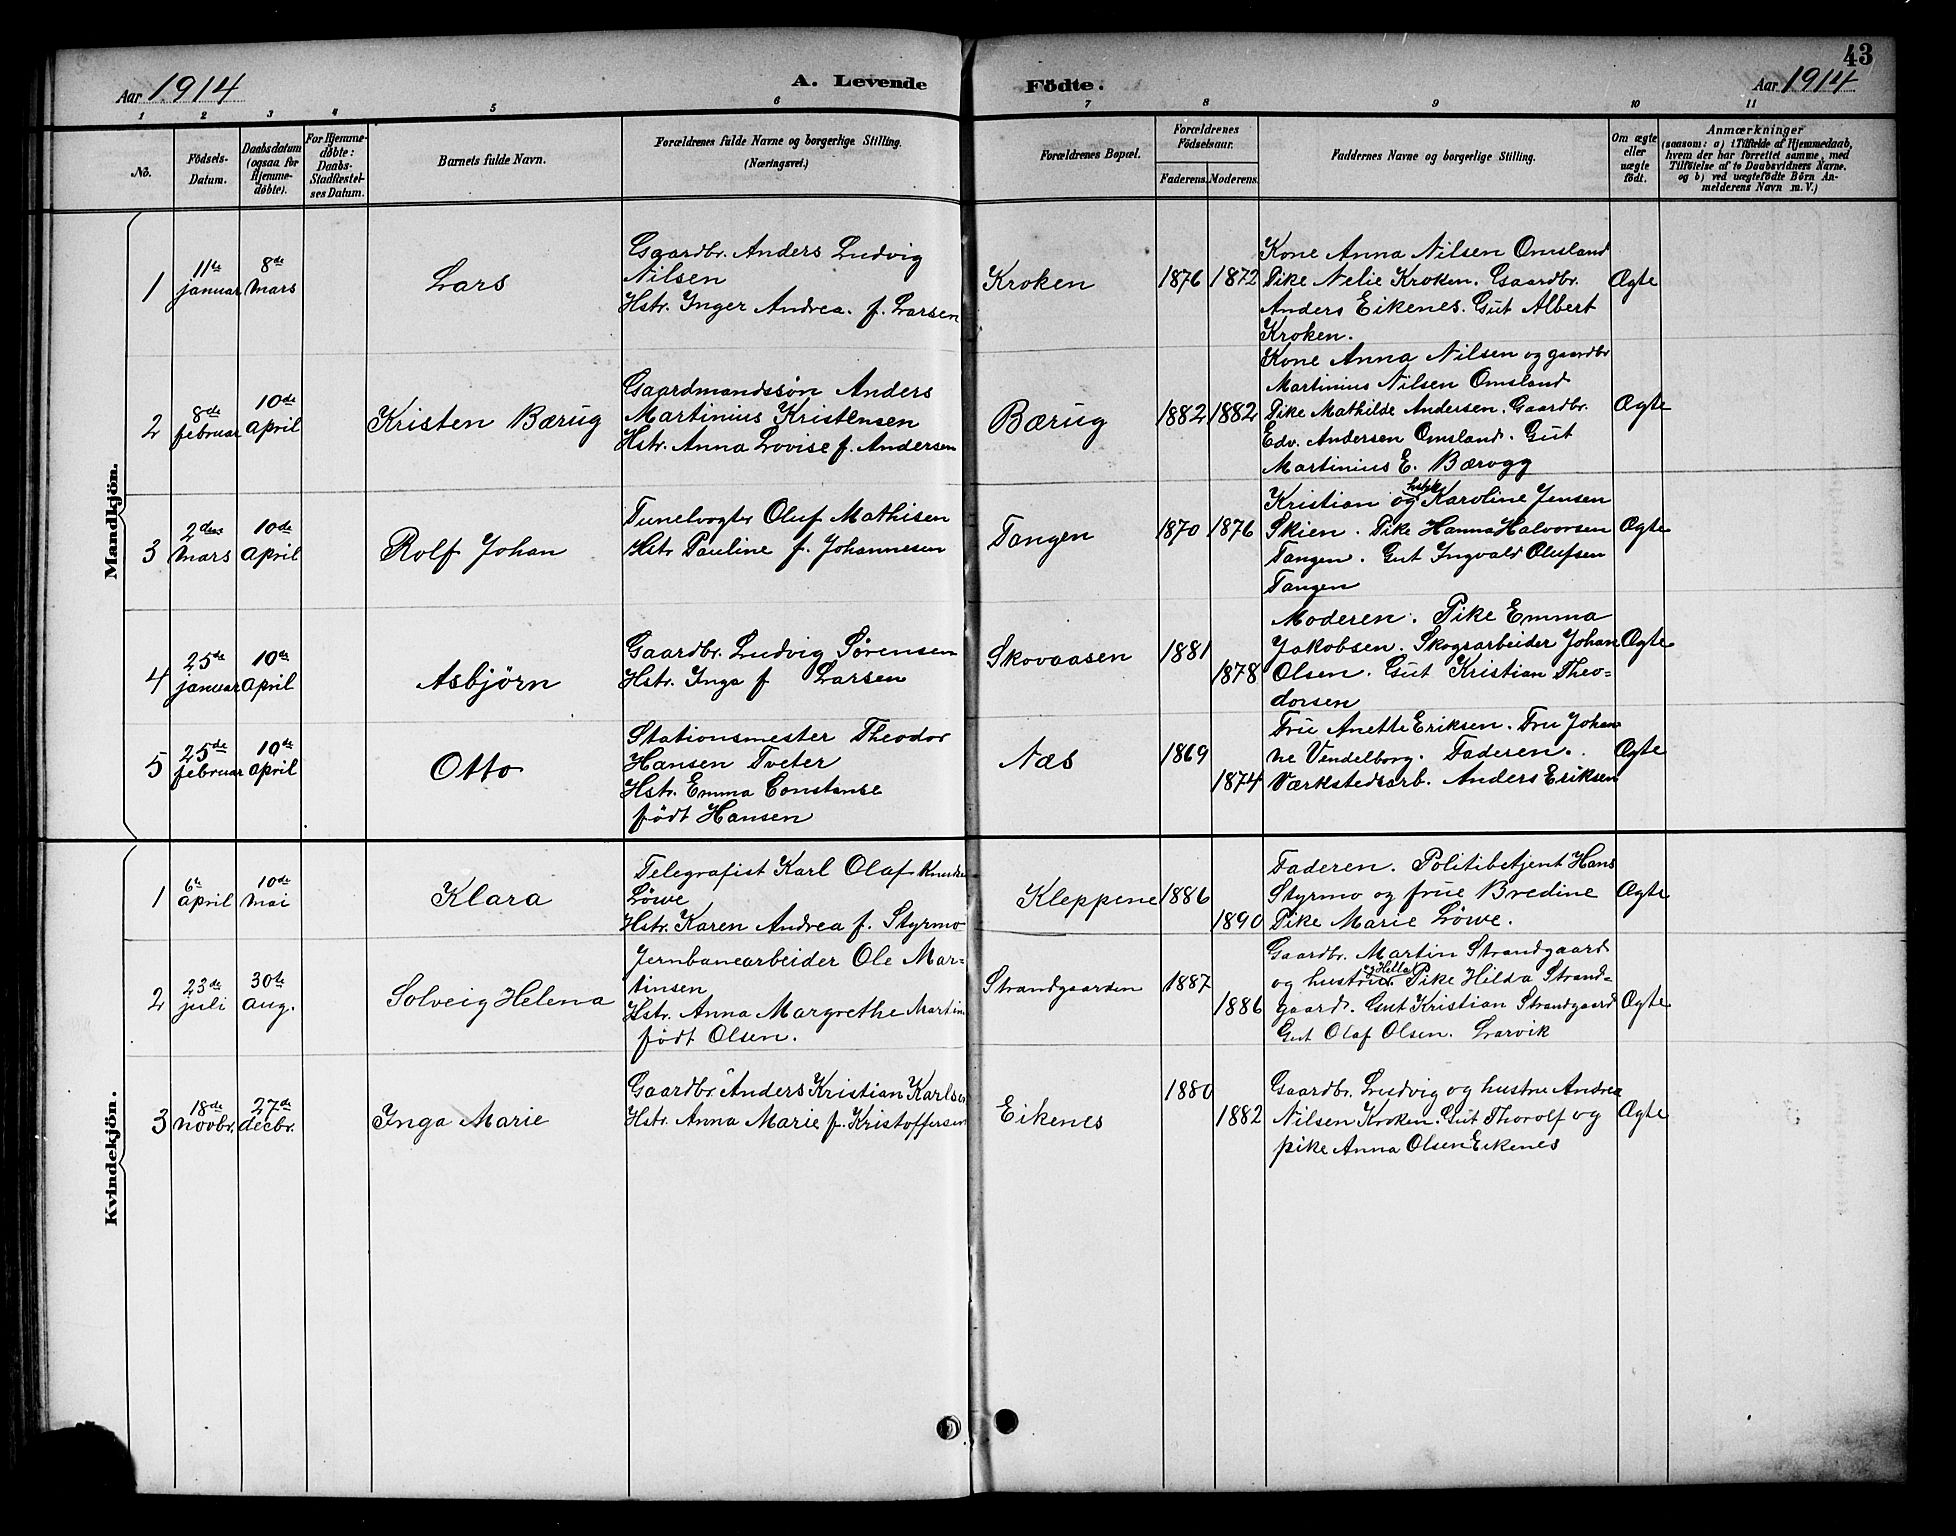 43
Aar 1914
A. Levende Födte.
Aar 1914
1 2 3 4 5 6 7 8 9 10 11
No.
Födsels-
Datum.
Daabsdatum
(ogsaa for
Hjemme-
döbte).
For Hjemme-
døbte:
Daabs-
Stadfæstel-
ses Datum.
Barnets fulde Navn.
Forældrenes fulde Navne og borgerlige Stilling.
(Næringsvei.)
Forældrenes Bopæl.
Forældrenes
Födselsaar.
Faderens. Moderens.
Faddernes Navne og borgerlige Stilling.
Om ægte
eller
uægte
født.
Anmærkninger
(saasom: a) i Tilfælde af Hjemmedaab,
hvem der har forrettet samme, med
Tilføielse af to Daabsvidners Navne.
og b) ved uægtefødte Börn An-
melderens Navn m. V.)
Mandkjön.
1
11te
januar
8de
Mars
Lars
Gaardbr. Anders Ludvig
Nilsen
Hstr. Inger Andrea. f. Larsen
Kroken
1876 1872
Kone Anna Nilsen Omsland
Pike Nelie Kroken. Gaardbr.
Anders Eikenes. Gut Albert
Kroken.
Ægte
2
8de
februar
10de
April
Kristen Bærug
Gaardmandssøn Anders
Martinius Kristensen
Hstr. Anna Lovise f. Andersen
Bærug
1882 1882
Kone Anna Nilsen og gaardbr
Martinius Nilsen Omsland
Pike Mathilde Andersen. Gaardbr.
Edv. Andersen Omsland. Gut
Martinius E. Bærugg
Ægte
3
2den
Mars
10de
April
Rolf Johan
Tunelvogter Oluf Mathisen
Hstr Pauline f. Johannesen
Tangen
1870 1876
Kristian og Karoline Jensen
Skien. Pike Hanna Halvorsen
Tangen. Gut Ingvald Olufsen
Tangen
Ægte
4
25de
januar
10de
April
Asbjörn
Gaardbr. Ludvig Sørensen
Hstr. Inga f Larsen
Skovaasen
1881
1878
Moderen. Pike Emma
Jakobsen. Skogsarbeider Johan
Olsen. Gut Kristian Theo-
dorsen
Ægte
5
25de
februar
10de
April
Otto
Stationsmester Theodor
Hansen Tveter
Hstr. Emma Constanse
født Hansen
Næs
1869
1874
Frue Anette Eriksen. Fru Johan
ne Vendelborg. Faderen.
Værkstedsarb. Anders Eriksen
Ægte
Kvindekjön.
1
6te
April
10de
Mai
Klara
Telegrafist Karl Olaf Knudsen
Løwe
Hstr. Karen Andrea f. Styrmo
Kleppene
1886
1890
Faderen. Politibetjent Hans
Styrmo og frue Bredine
Pike Marie Løwe.
Ægte
2
23de
juli
30te
Aug.
Solveig Helena
Jernbanearbeider Ole Mar-
tinsen
Hstr. Anna Margrethe Martin
født Olsen.
Strandgaarden
1887
1886
Gaardbr. Martin Strandgaard
og hustru. Pike Hilda Strand-
gaard. Gut Kristian Strandgaard
Gut Olaf Olsen. Larvik
Ægte
3
18de
Novbr.
27de
decbr.
Inga Marie
Gaardbr. Anders Kristian Karlsen
Hstr. Anna Marie f. Kristoffersen
Eikenes
1880
1882
Gaardbr. Ludvig og hustru Andrea
Nilsen Kroken. Gut Thorolf og
pike Anna Olsen Eikenes
Ægte